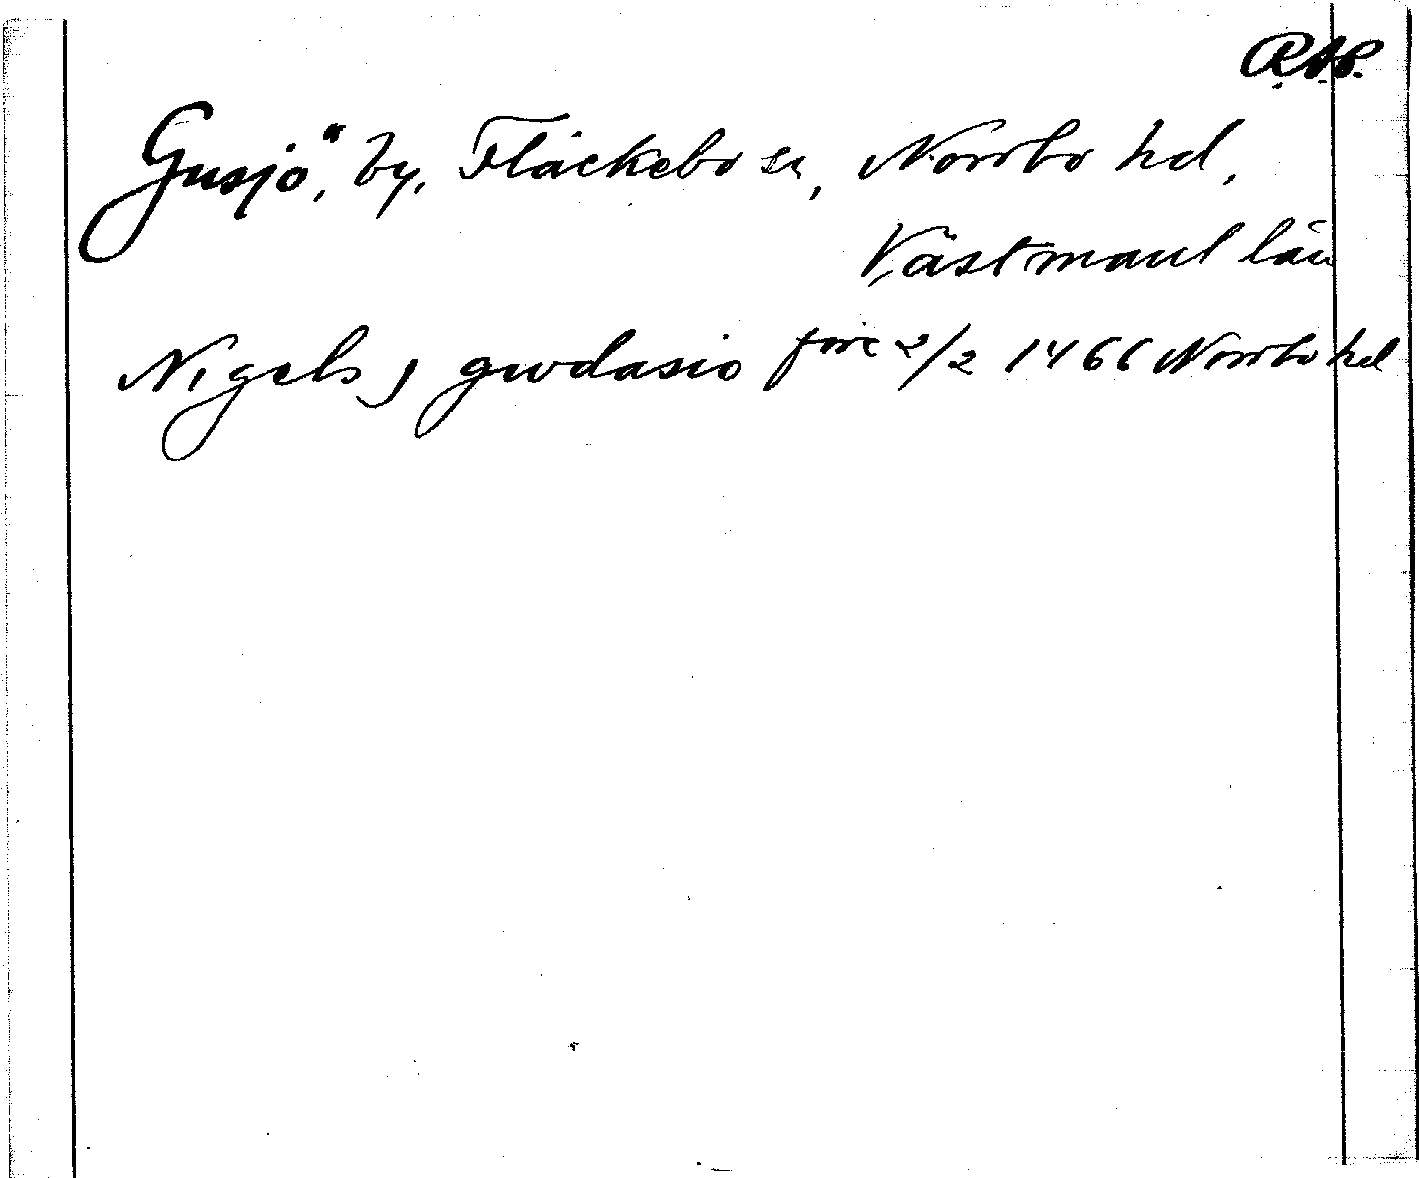 R.A.P.
Gusjö, by, Fläckebo sn, Norrbo hd,
Västmanl län
Nigels j gwdasio före 2/2 1466 Norrbo hd